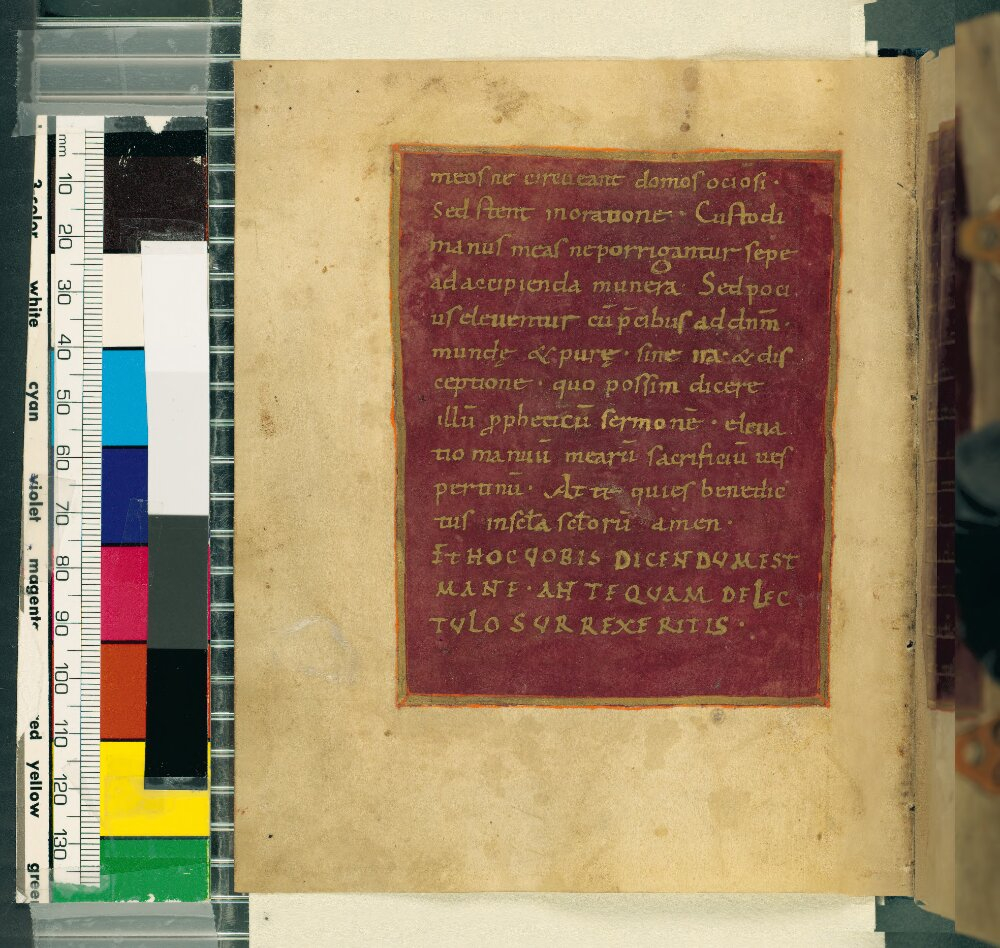 meos ne circueant domos ociosi ·
Sed stent inoratione · Custodi
manus meas ne porrigantur sepe
ad accipienda munera Sed poci
us eleventur cū p̄cibus ad dn̄m ·
mundę & purę · sine ira · & dis
ceptione · quo possim dicere
illū ꝓpheticū sermonē · eleva
tio manuū mearū sacrificiū ves
pertinū · At te quies benedic
tus inscl̄a scl̄orū amen ·
Et HOC VOBIS DICENDUM EST
MANE · ANTEQUAM DE LEC
TVLO SURREXERITIS ·
mm 10 20 30 40 50 60 70 80 90 100 110 120 130
color white cyan violet magenta red yellow gree